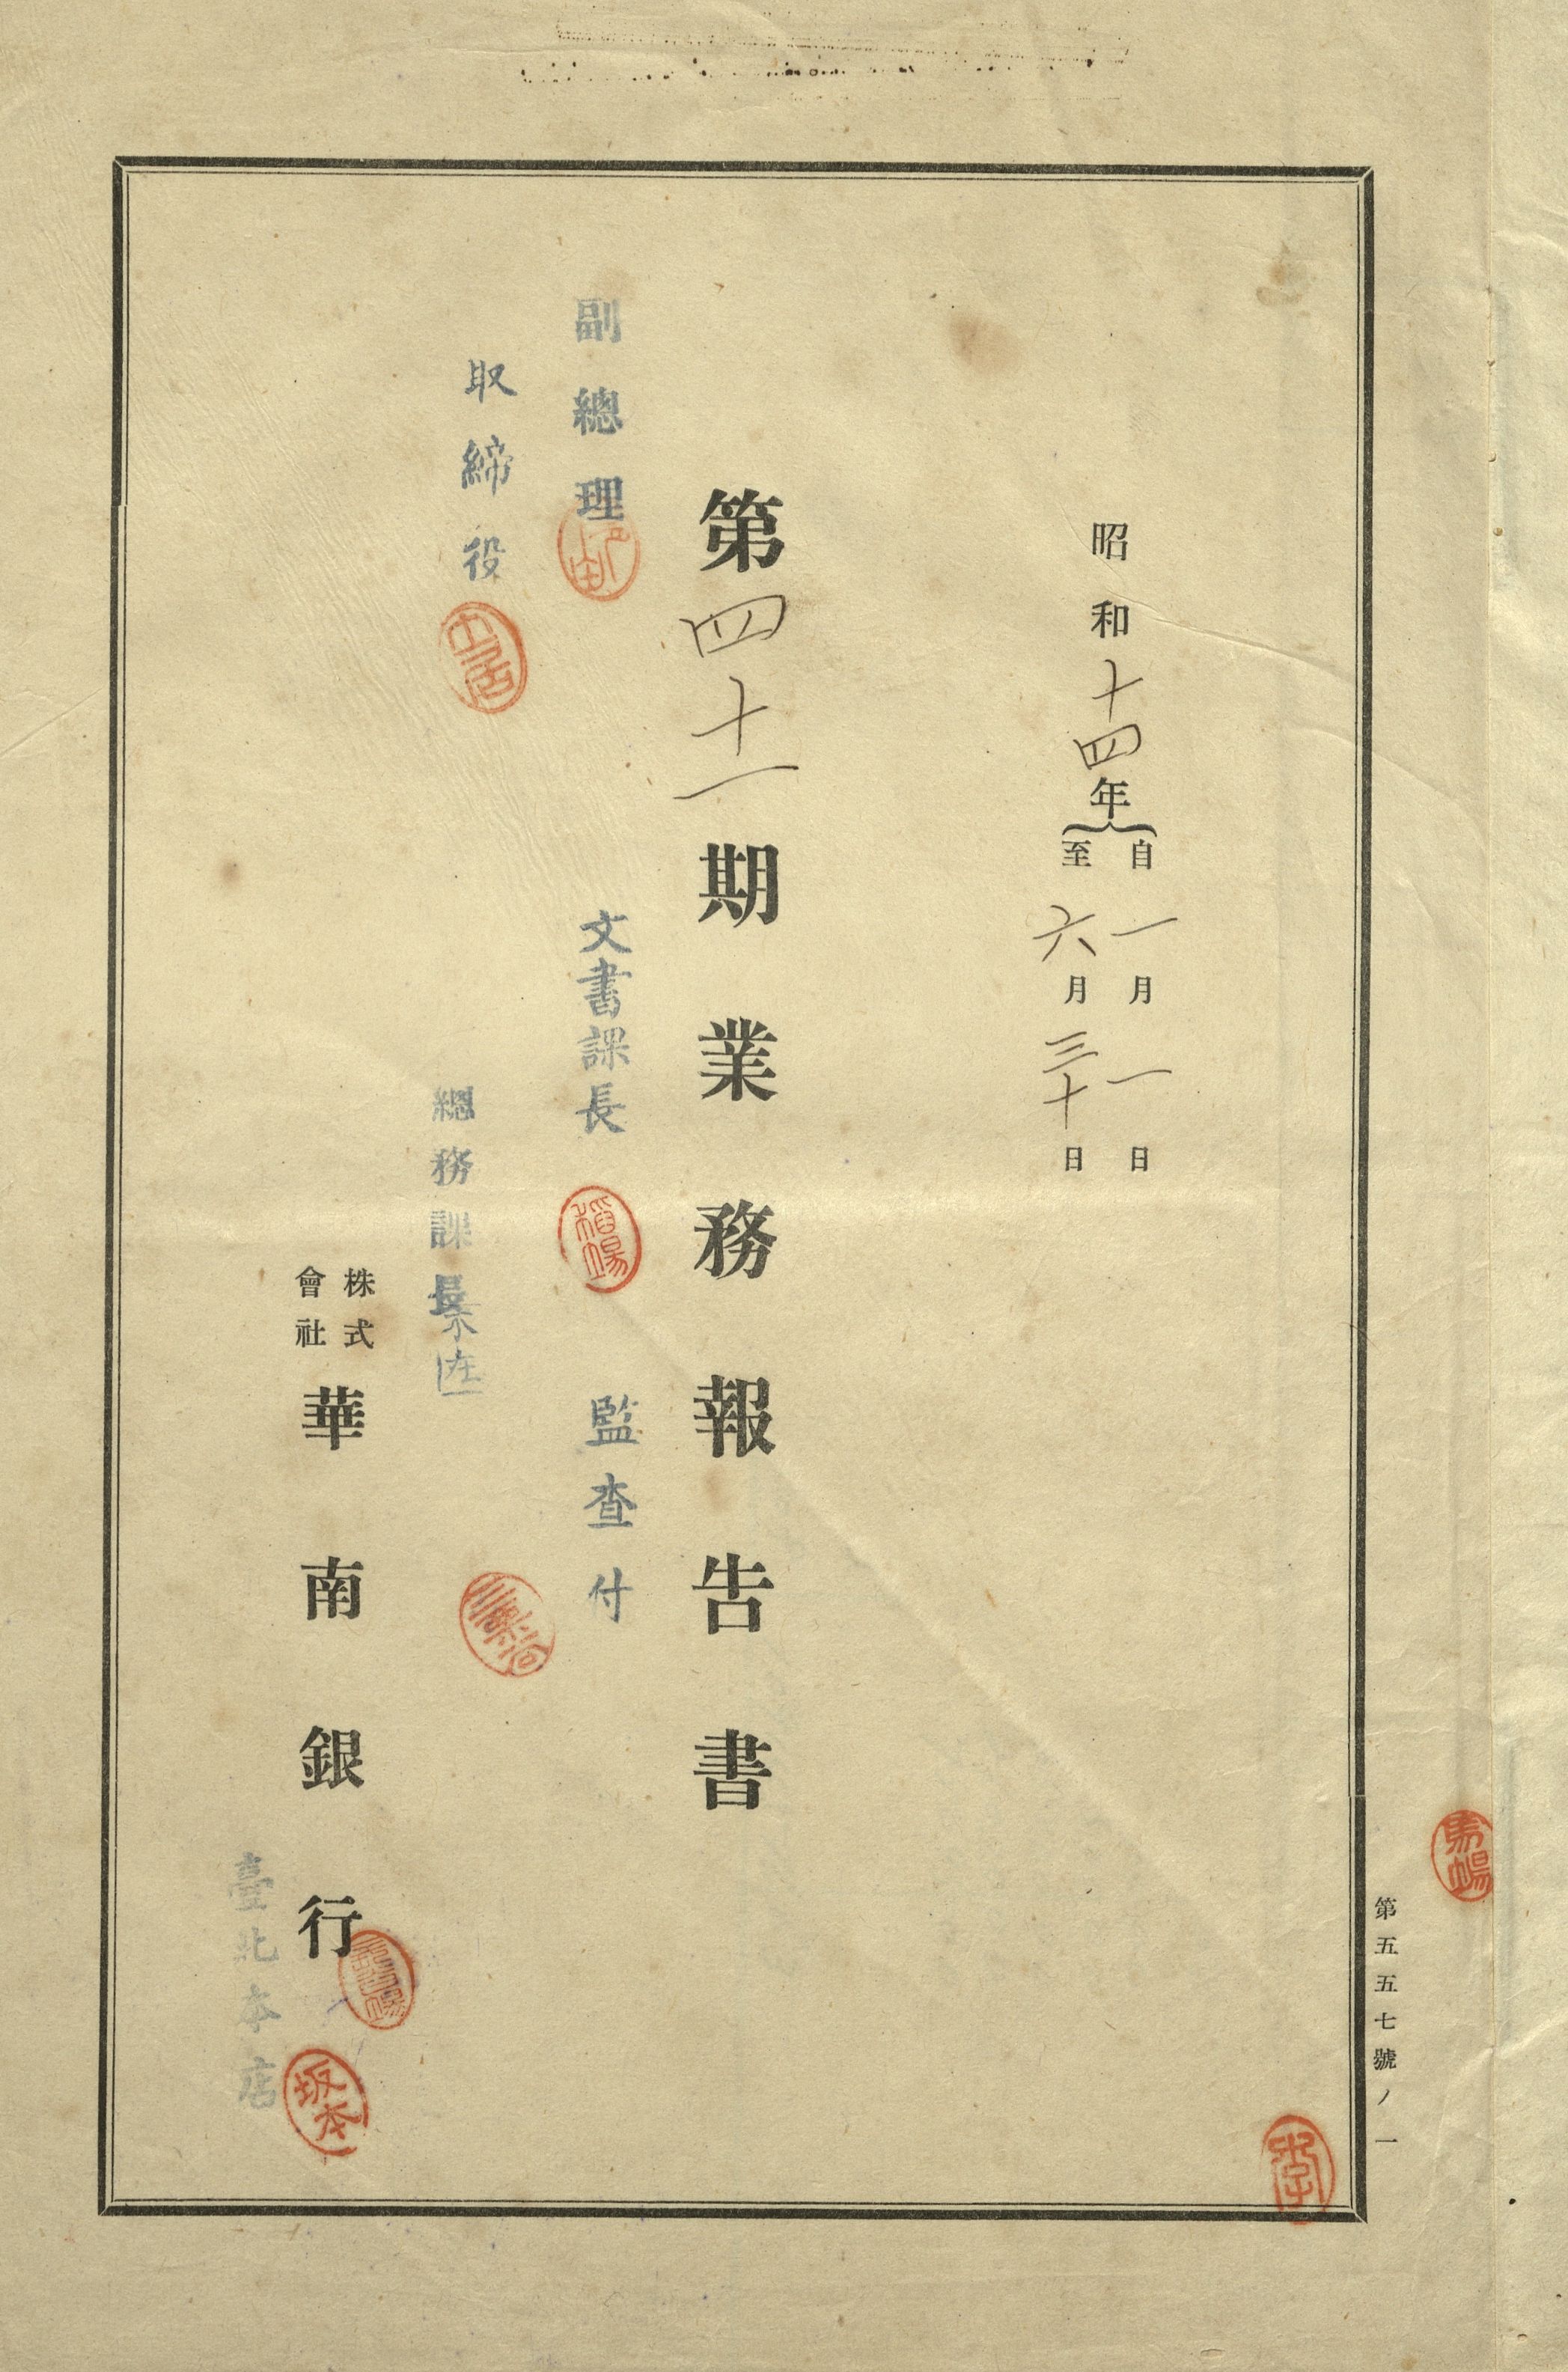 第五五七號ノ一
昭和十四年
自一月一日
至六月三十日
第四十一期業務報告書
副總理
文書課長
監査付
取締役
總務課長
株式
會社
華南銀行
臺北本店
坂本
李